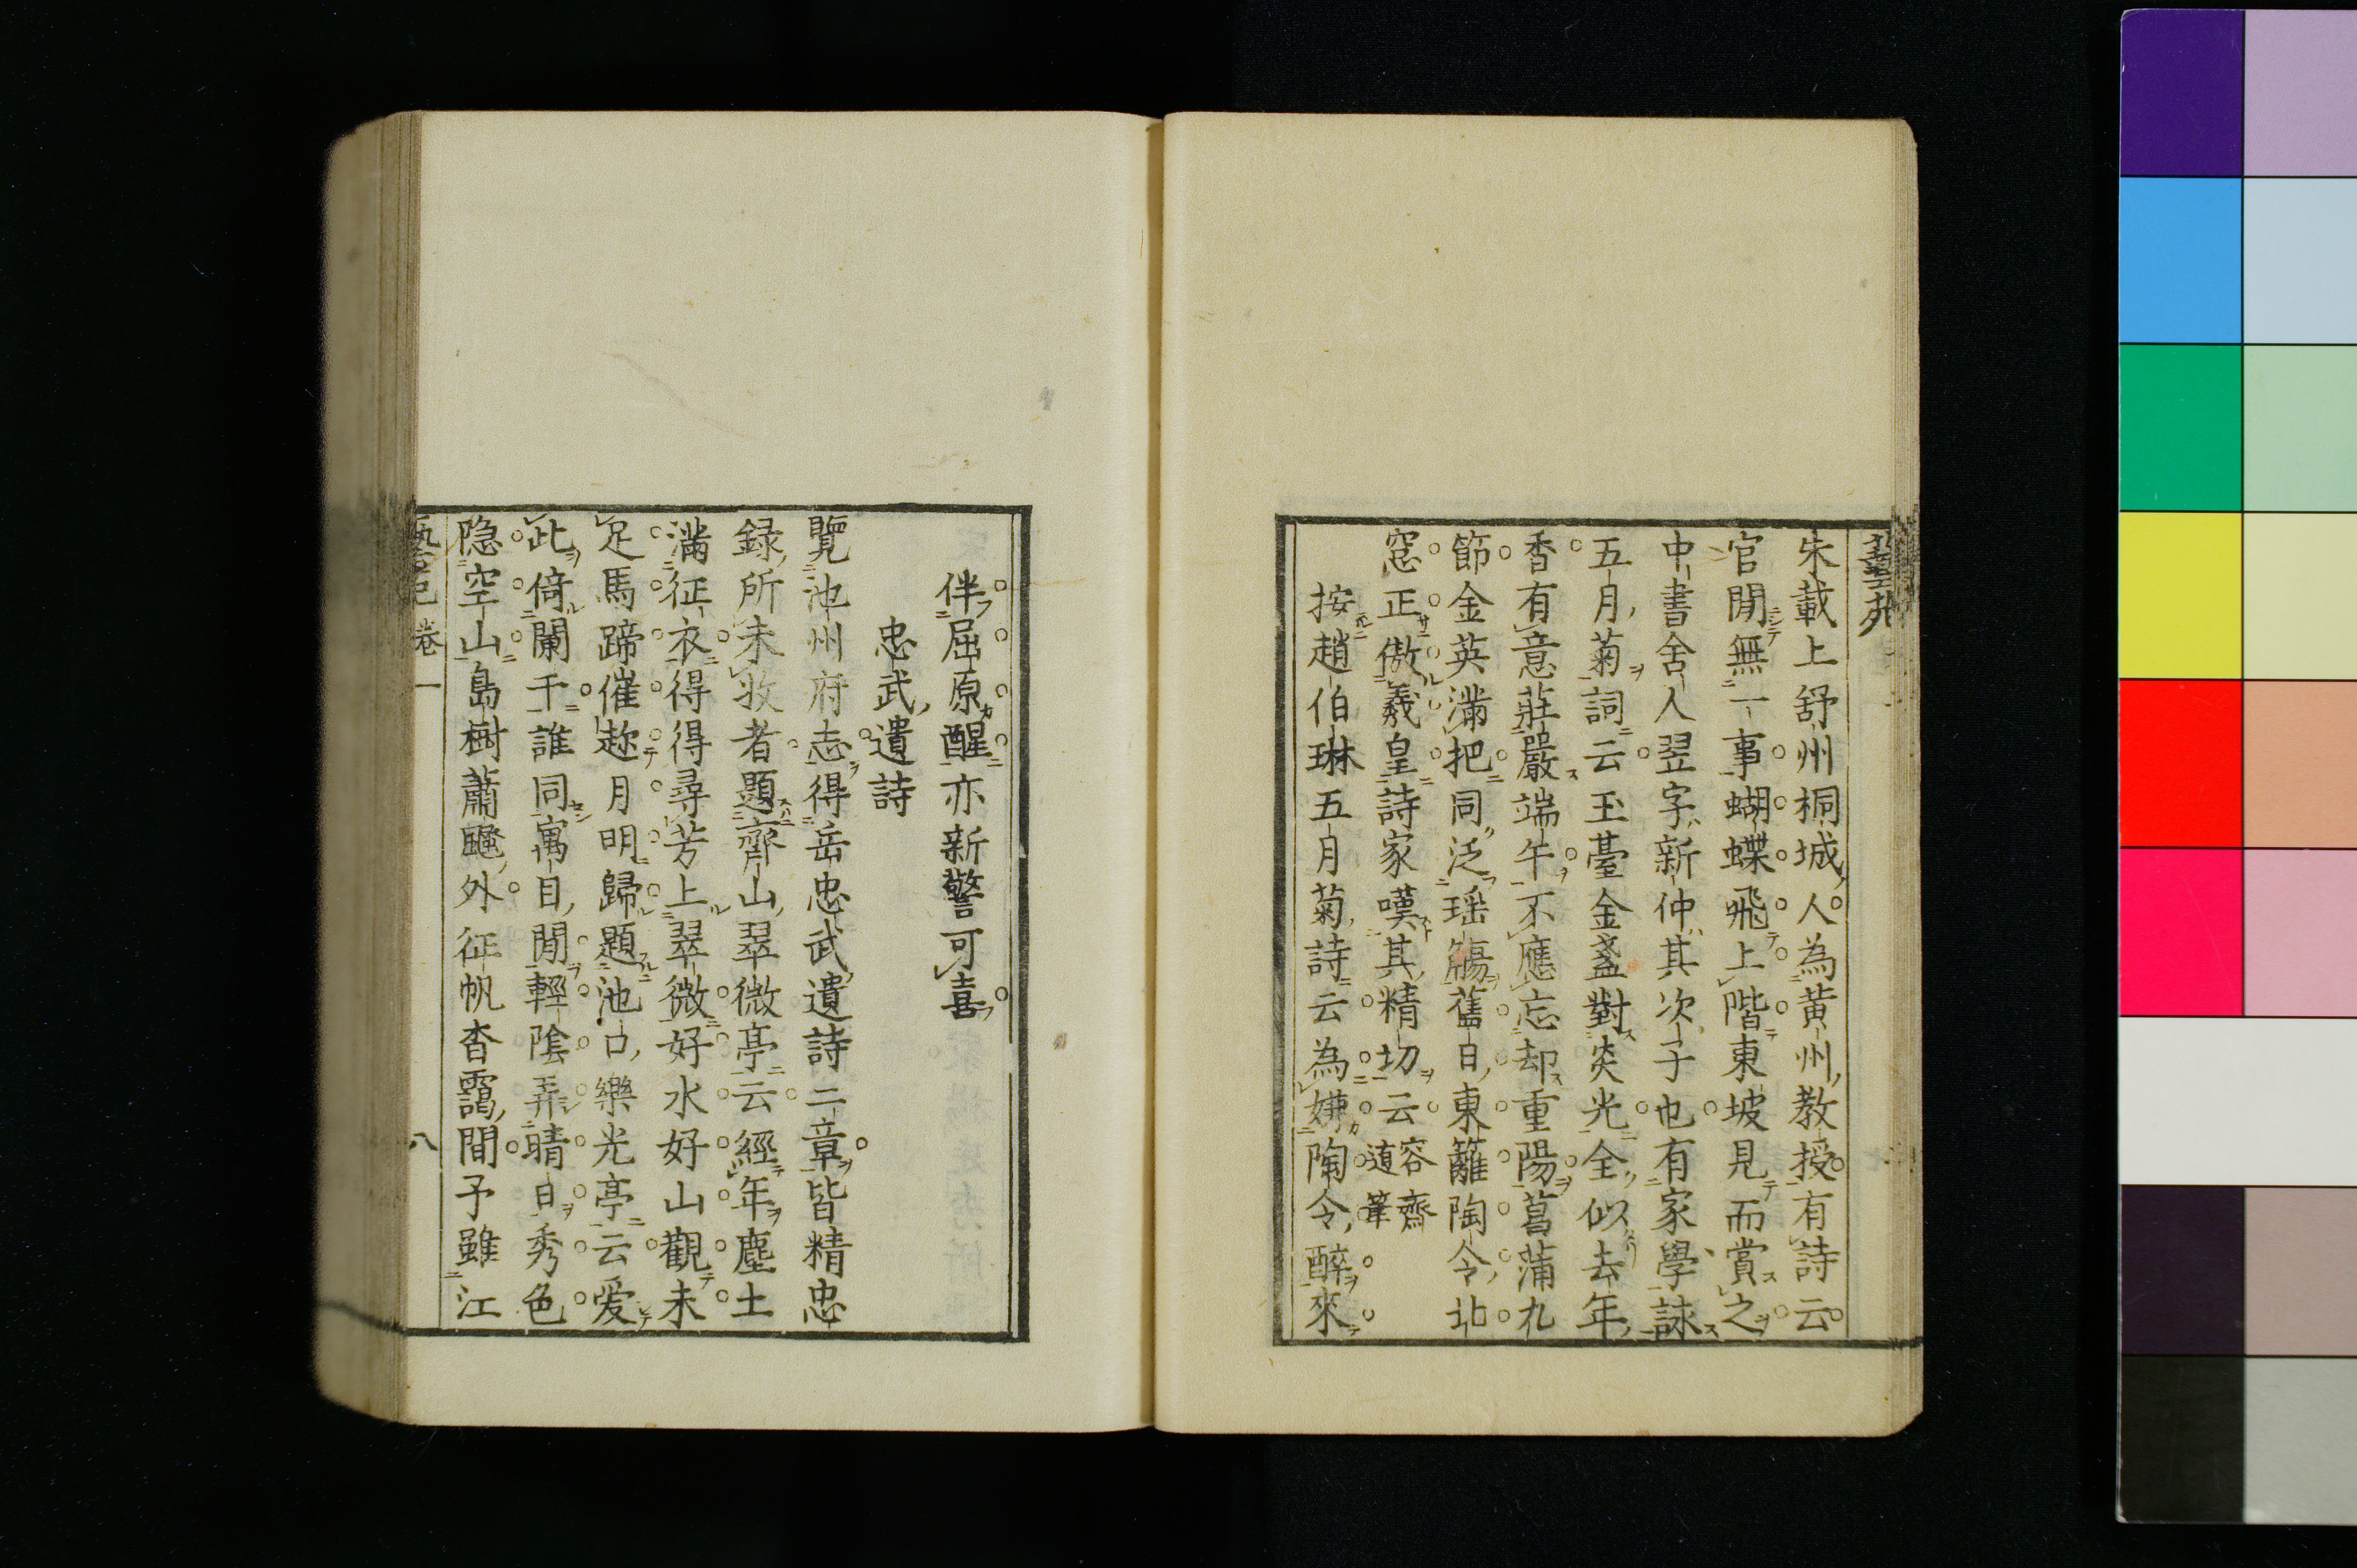 朱載上舒州桐城人為黄州教授有詩云
官閒無一事蝴蝶飛上階東坡見而賞之
中書舍人翌字新仲其次子也有家學詠
五月菊詞云玉臺金盞對炎光全似去年
香有意莊嚴端午不應忘却重陽菖蒲九
節金英滿把同泛瑶觴舊日東籬陶令北
窓正傲羲皇詩家嘆其精切云容齋
随筆
按趙伯琳五月菊詩云為嫌陶令醉來
伴屈原醒亦新警可喜
忠武遺詩
覽池州府志得岳忠武遺詩二章皆精忠
録所未收者題齊山翠微亭云經年塵土
滿征衣得得尋芳上翠微好水好山觀未
足馬蹄催趂月明歸題池口樂光亭云爱
此倚闌干誰同寓目閒輕陰弄晴日秀色
隐空山島樹蕭颼外征帆杳靄間予雖江
卷一
八